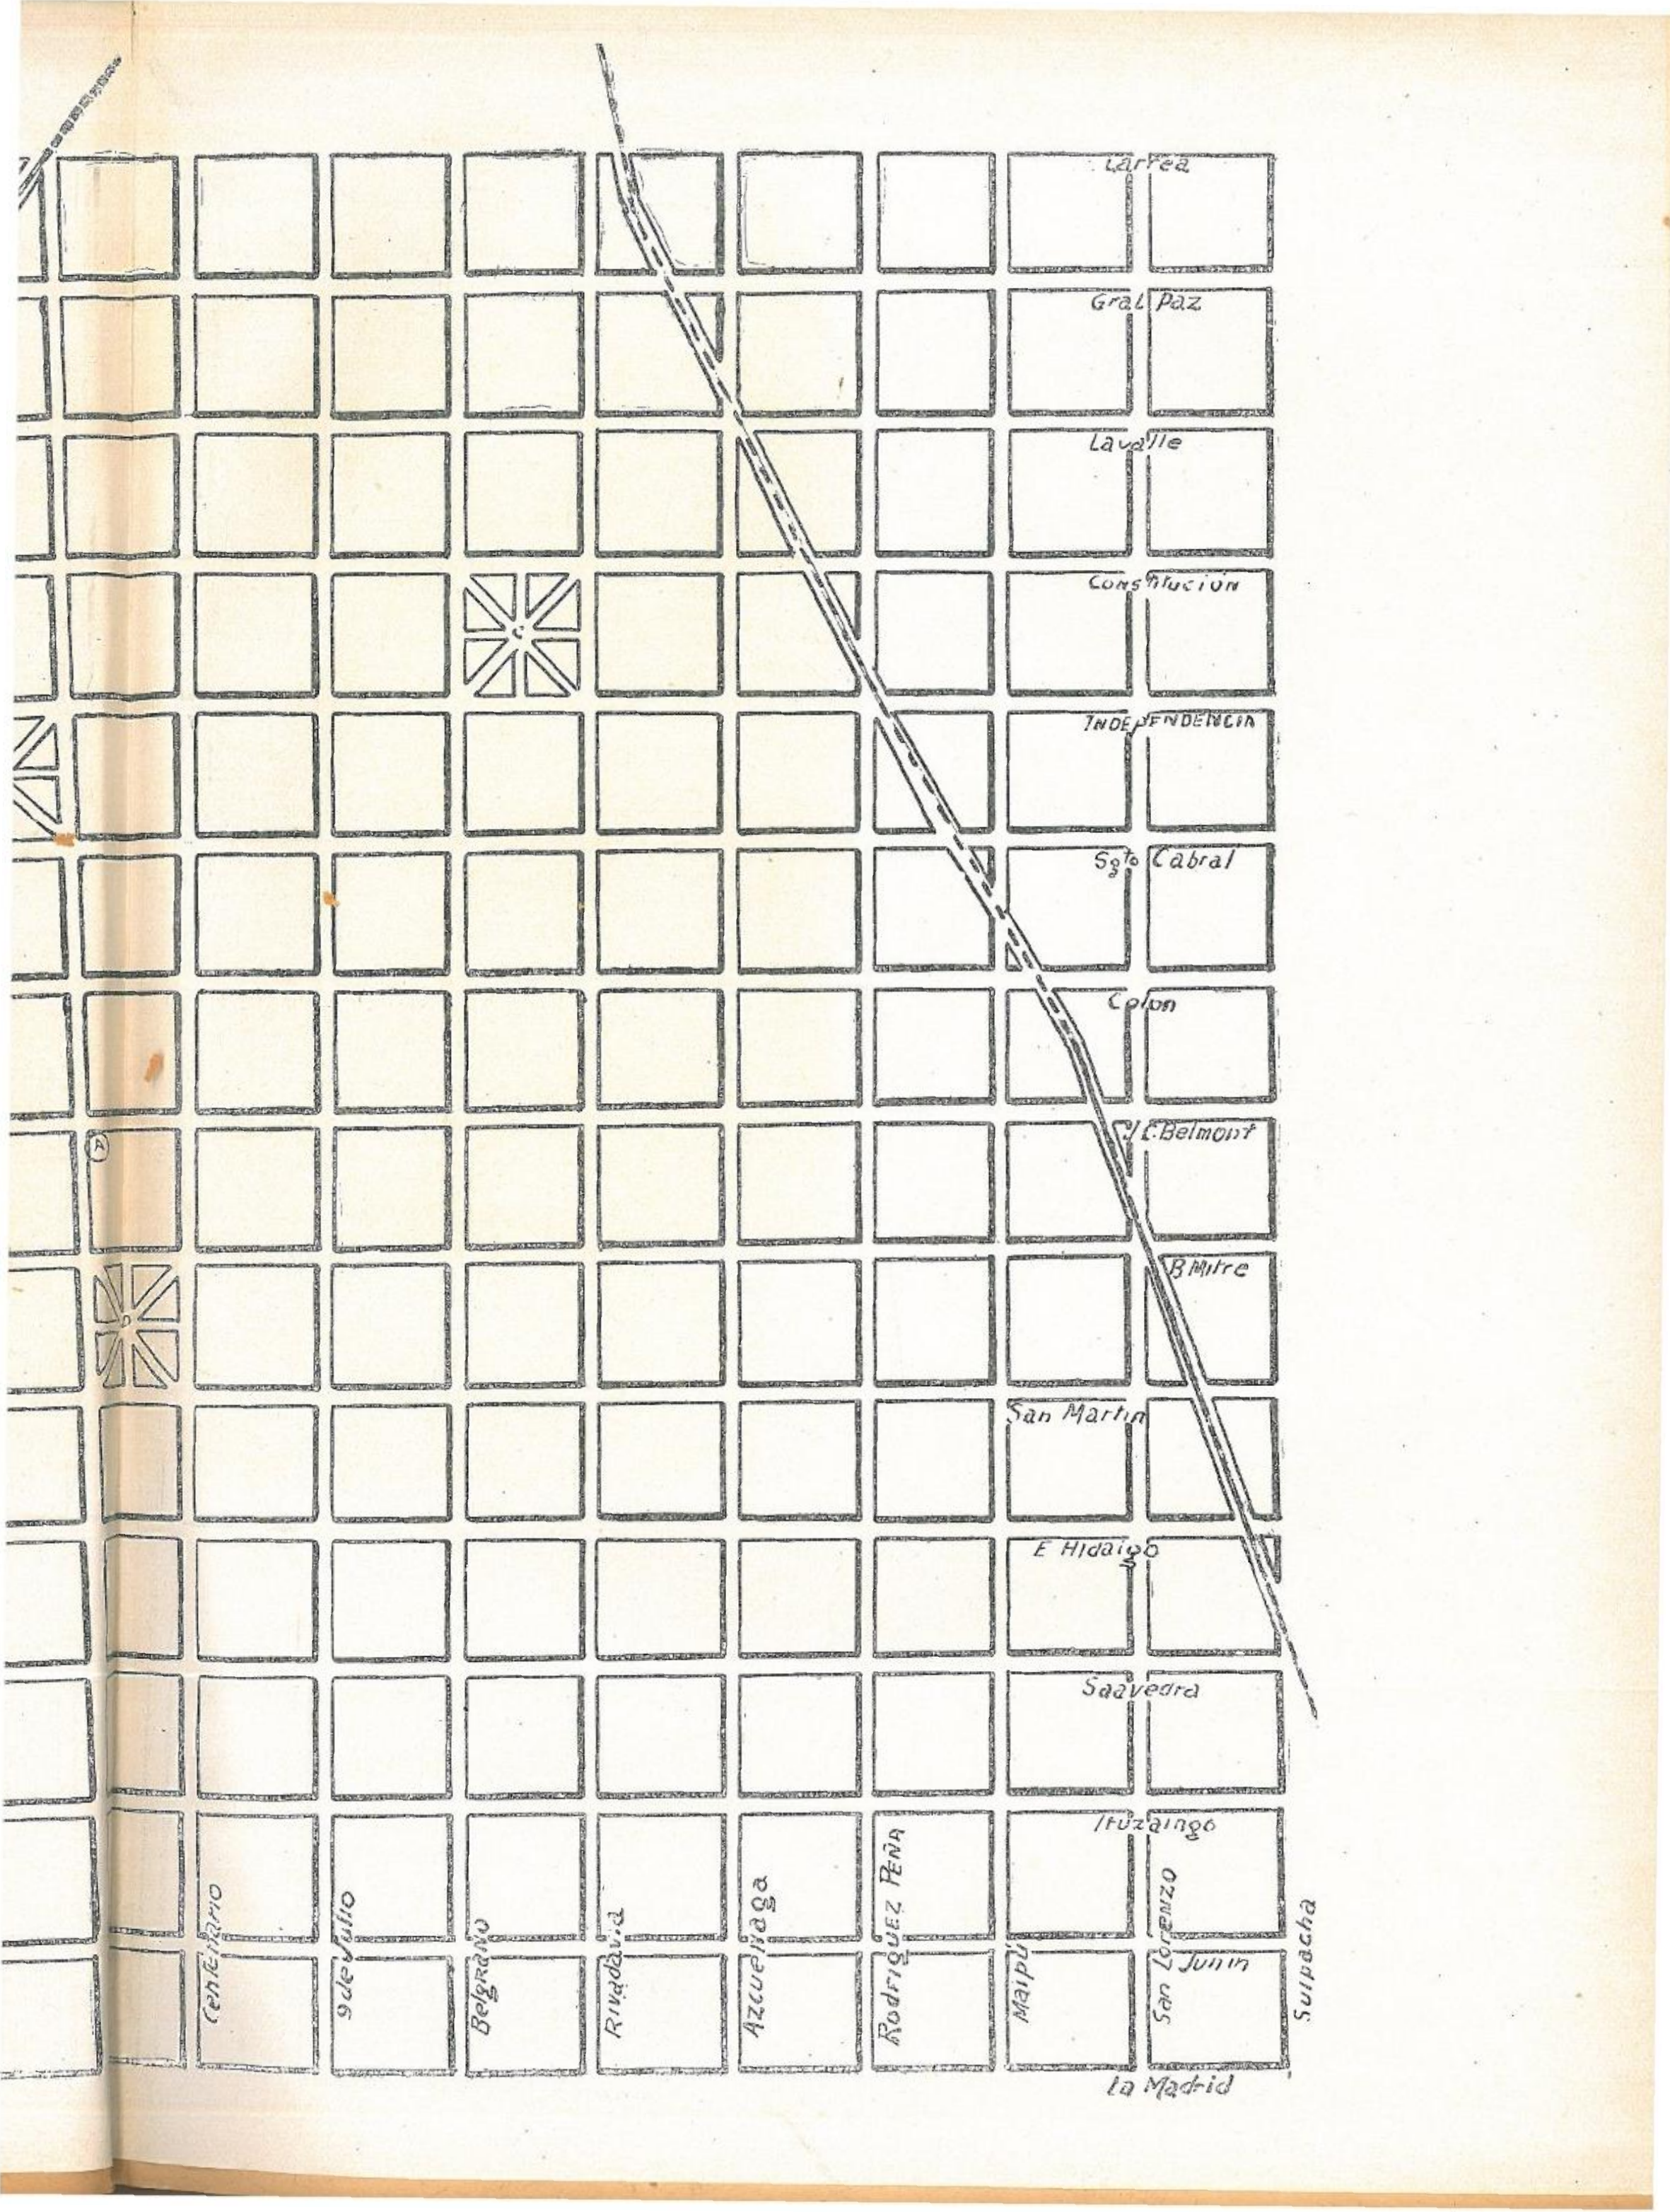 Larrea
Gral Paz
Lavalle
Constitución
C
INDEPENDENCIA
Sgto Cabral
Colon
A
J C. Belmont
B Mitre
D
San Martin
E Hidalgo
Saavedra
Ituzaingo
Centenario
9 de Julio
Belgrano
Rivadavia
Azcuenaga
Rodriguez Peña
Maipú
San Lorenzo
Junin
Suipacha
la Madrid